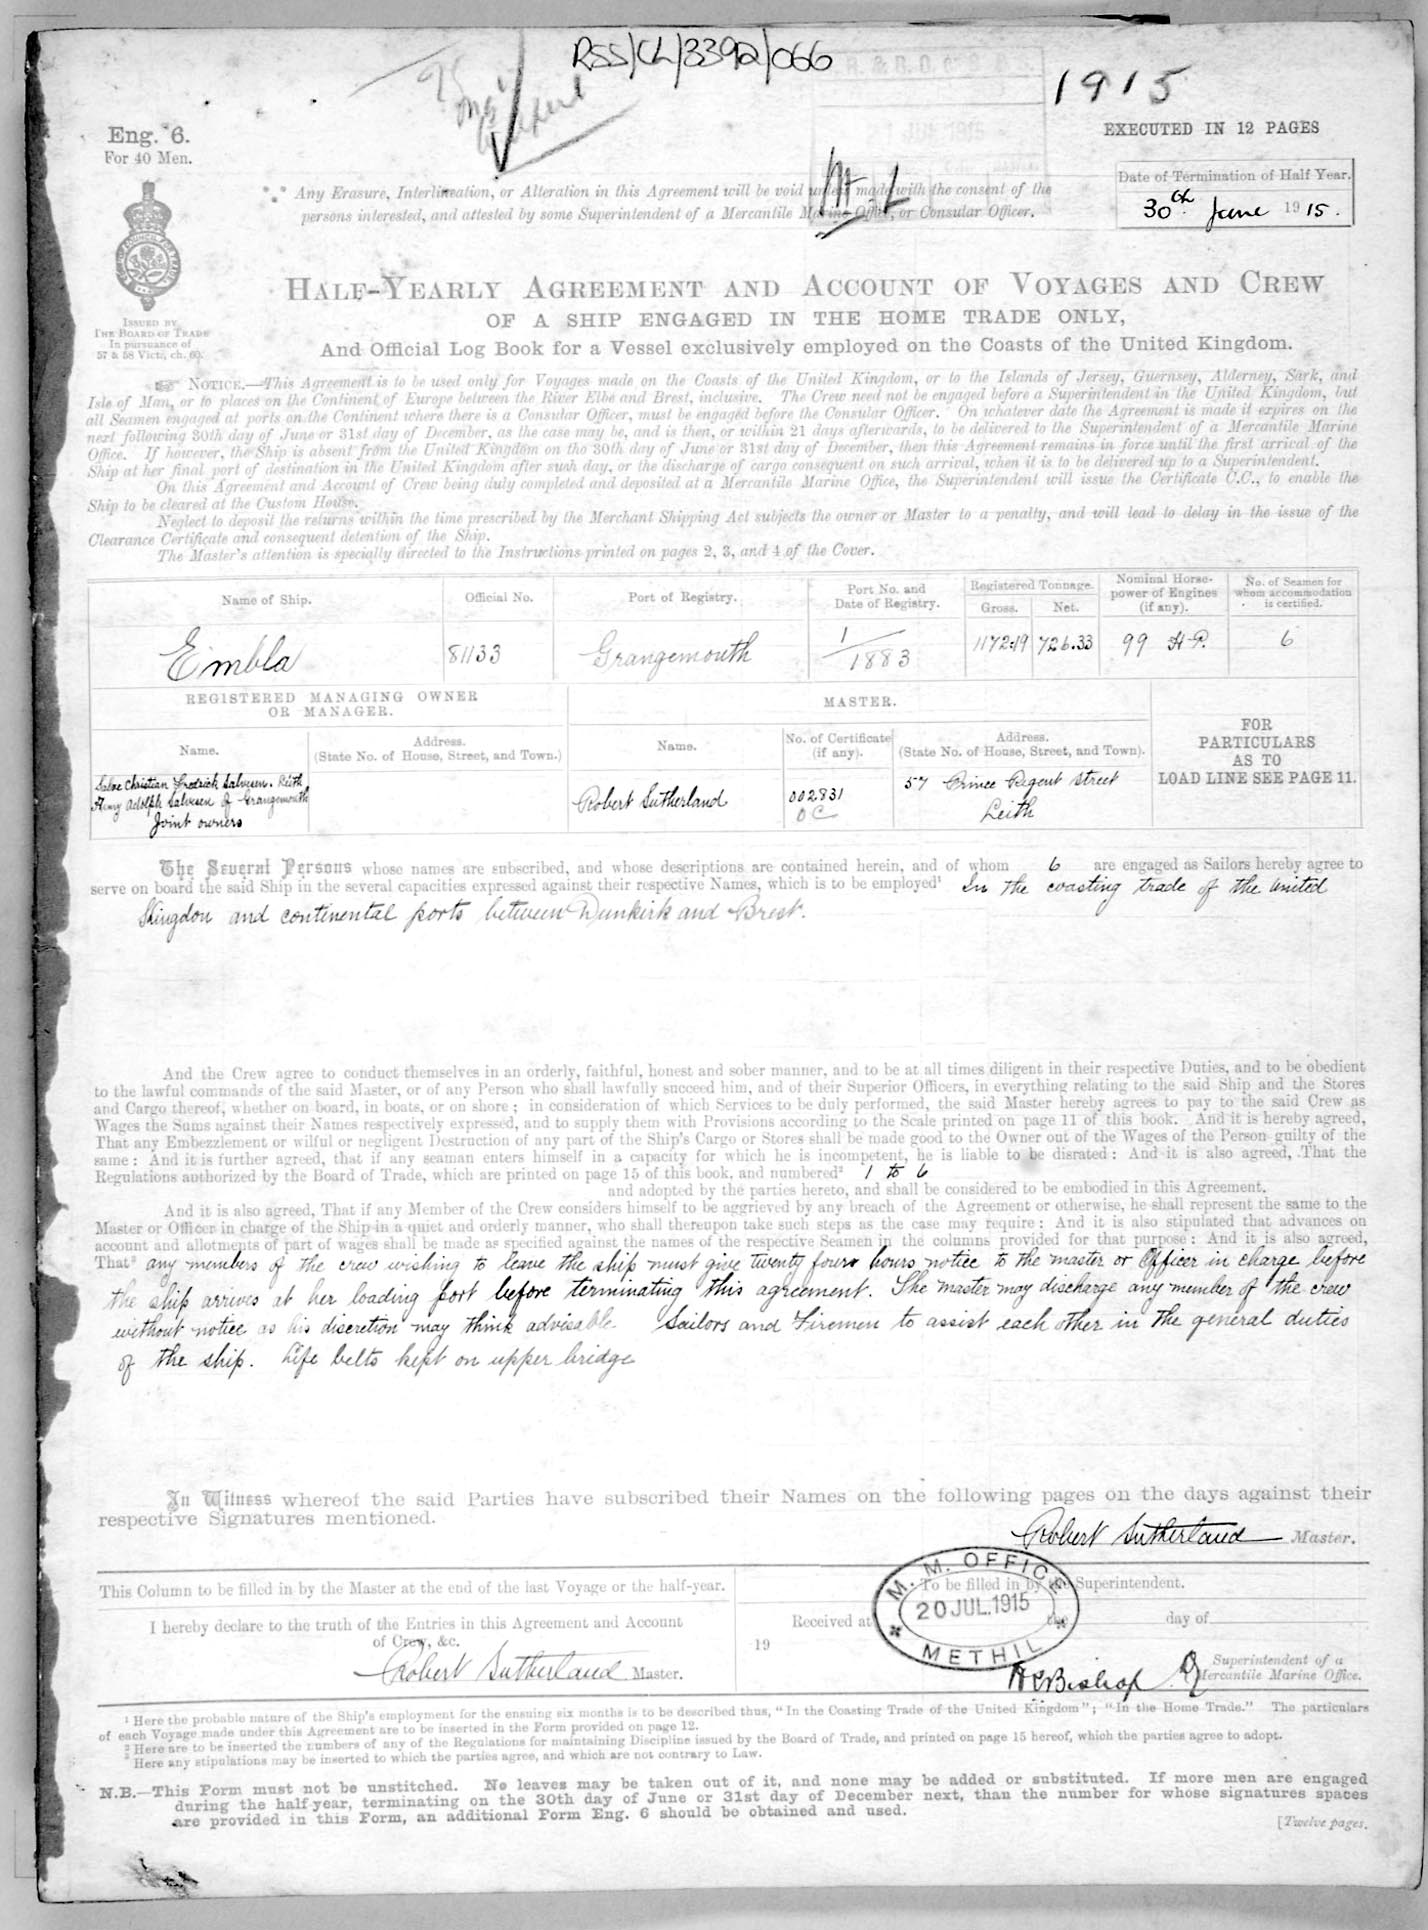 RSS/CL/3392/066
1915
Eng. 6.
For 40 Men.
EXECUTED IN 12 PAGES
JUL 1915
Date of Termination of Half Year.
30th June 1915.
Any Erasure, Interlineation, or Alteration in this Agreement will be void unless made with the consent of the
persons interested, and attested by some Superintendent of a Mercantile Marine Office, or Consular Officer.
ISSUED BY
THE BOARD OF TRADE
In pursuance of
57 & 58 Vict., ch. 60.
HALF-YEARLY AGREEMENT AND ACCOUNT OF VOYAGES AND CREW
OF A SHIP ENGAGED IN THE HOME TRADE ONLY,
And Official Log Book for a Vessel exclusively employed on the Coasts of the United Kingdom.
NOTICE.—This Agreement is to be used only for Voyages made on the Coasts of the United Kingdom, or to the Islands of Jersey, Guernsey, Alderney, Sark, and
Isle of Man, or to places on the Continent of Europe between the River Elbe and Brest, inclusive. The Crew need not be engaged before a Superintendent in the United Kingdom, but
all Seamen engaged at ports on the Continent where there is a Consular Officer, must be engaged before the Consular Officer. On whatever date the Agreement is made it expires on the
next following 30th day of June or 31st day of December, as the case may be, and is then, or within 21 days afterwards, to be delivered to the Superintendent of a Mercantile Marine
Office. If however, the Ship is absent from the United Kingdom on the 30th day of June or 31st day of December, then this Agreement remains in force until the first arrival of the
Ship at her final port of destination in the United Kingdom after such day, or the discharge of cargo consequent on such arrival, when it is to be delivered up to a Superintendent.
On this Agreement and Account of Crew being duly completed and deposited at a Mercantile Marine Office, the Superintendent will issue the Certificate C.C., to enable the
Ship to be cleared at the Custom House.
Neglect to deposit the returns within the time prescribed by the Merchant Shipping Act subjects the owner or Master to a penalty, and will lead to delay in the issue of the
Clearance Certificate and consequent detention of the Ship.
The Master's attention is specially directed to the Instructions printed on pages 2, 3, and 4 of the Cover.
Name of Ship. Official No. Port of Registry. Port No. and Date of Registry. Registered Tonnage. Gross. Net. Nominal Horse-power of Engines (if any). No. of Seamen for whom accommodation is certified.
Embla 81133 Grangemouth 1/1883 1172.19 726.33 99 H P. 6
REGISTERED MANAGING OWNER
OR MANAGER.
MASTER.
FOR
PARTICULARS
AS TO
LOAD LINE SEE PAGE 11.
Name. Address. (State No. of House, Street, and Town.) Name. No. of Certificate (if any). Address. (State No. of House, Street, and Town).
Salve Christian Fredrick Salvesen. Leith
Henry Adolph Salvesen of Grangemouth
Joint owners
Robert Sutherland
002831
O C
57 Prince Regent Street
Leith
The Several Persons whose names are subscribed, and whose descriptions are contained herein, and of whom 6 are engaged as Sailors hereby agree to
serve on board the said Ship in the several capacities expressed against their respective Names, which is to be employed¹ In the coasting trade of the United
Kingdon and continental ports between Dunkirk and Brest.
And the Crew agree to conduct themselves in an orderly, faithful, honest and sober manner, and to be at all times diligent in their respective Duties, and to be obedient
to the lawful commands of the said Master, or of any Person who shall lawfully succeed him, and of their Superior Officers, in everything relating to the said Ship and the Stores
and Cargo thereof, whether on board, in boats, or on shore; in consideration of which Services to be duly performed, the said Master hereby agrees to pay to the said Crew as
Wages the Sums against their Names respectively expressed, and to supply them with Provisions according to the Scale printed on page 11 of this book. And it is hereby agreed,
That any Embezzlement or wilful or negligent Destruction of any part of the Ship's Cargo or Stores shall be made good to the Owner out of the Wages of the Person guilty of the
same: And it is further agreed, that if any seaman enters himself in a capacity for which he is incompetent, he is liable to be disrated: And it is also agreed, That the
Regulations authorized by the Board of Trade, which are printed on page 15 of this book, and numbered² 1 to 6
and adopted by the parties hereto, and shall be considered to be embodied in this Agreement.
And it is also agreed, That if any Member of the Crew considers himself to be aggrieved by any breach of the Agreement or otherwise, he shall represent the same to the
Master or Officer in charge of the Ship in a quiet and orderly manner, who shall thereupon take such steps as the case may require: And it is also stipulated that advances on
account and allotments of part of wages shall be made as specified against the names of the respective Seamen in the columns provided for that purpose: And it is also agreed,
That³ any members of the crew wishing to leave the ship must give twenty four hours notice to the master or Officer in charge before
the ship arrives at her loading port before terminating this agreement. The master may discharge any member of the crew
without notice as his discretion may think advisable. Sailors and Firemen to assist each other in the general duties
of the ship. Life belts kept on upper bridge
In Witness whereof the said Parties have subscribed their Names on the following pages on the days against their
respective Signatures mentioned.
Robert Sutherland Master.
This Column to be filled in by the Master at the end of the last Voyage or the half-year.
I hereby declare to the truth of the Entries in this Agreement and Account
of Crew, &c.
Robert Sutherland Master.
To be filled in by the Superintendent.
Received at the day of
19
M. M. OFFICE
20 JUL.1915
METHIL
H C Bishop
Superintendent of a
Mercantile Marine Office.
¹ Here the probable nature of the Ship's employment for the ensuing six months is to be described thus, "In the Coasting Trade of the United Kingdom"; "In the Home Trade." The particulars
of each Voyage made under this Agreement are to be inserted in the Form provided on page 12.
² Here are to be inserted the numbers of any of the Regulations for maintaining Discipline issued by the Board of Trade, and printed on page 15 hereof, which the parties agree to adopt.
³ Here any stipulations may be inserted to which the parties agree, and which are not contrary to Law.
N.B.—This Form must not be unstitched. No leaves may be taken out of it, and none may be added or substituted. If more men are engaged
during the half-year, terminating on the 30th day of June or 31st day of December next, than the number for whose signatures spaces
are provided in this Form, an additional Form Eng. 6 should be obtained and used.
[Twelve pages.